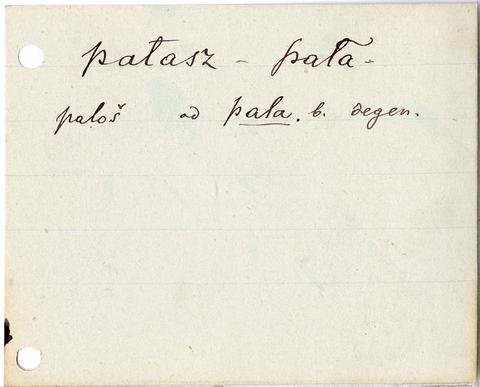 pałasz - pała -
paloš od pala. b. segen.